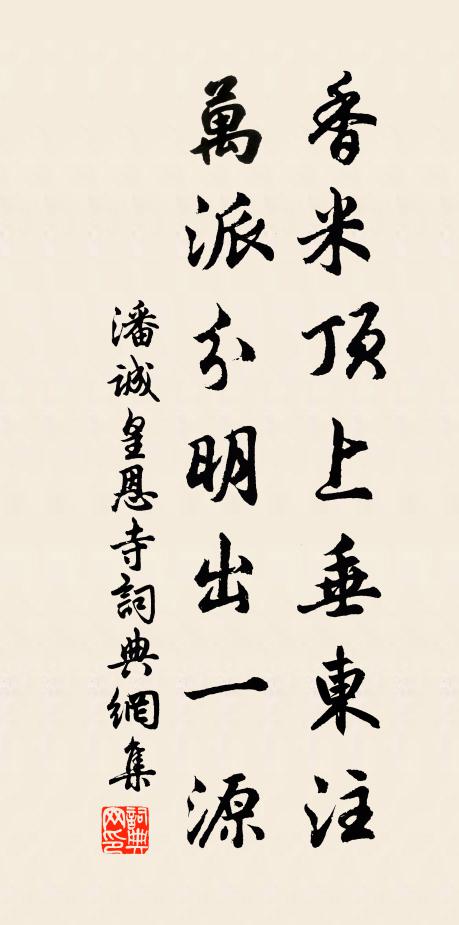 香米頂上垂東注
萬派分明出一源
潘誠皇恩寺詞典網集
詞典網印